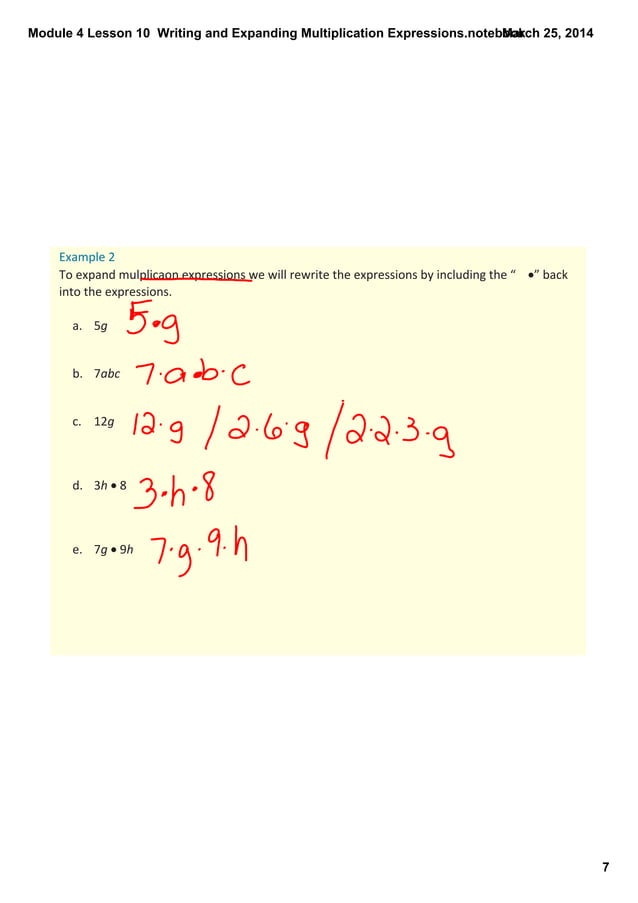 Module 4 Lesson 10  Writing and Expanding Multiplication Expressions.notebook March 25, 2014
Example 2
To expand mulplicaon expressions we will rewrite the expressions by including the “ •” back
into the expressions.
a. 5g 5·g
b. 7abc 7·a·b·c
c. 12g 12·g / 2·6·g / 2·2·3·g
d. 3h • 8 3·h·8
e. 7g • 9h 7·g·9·h
7